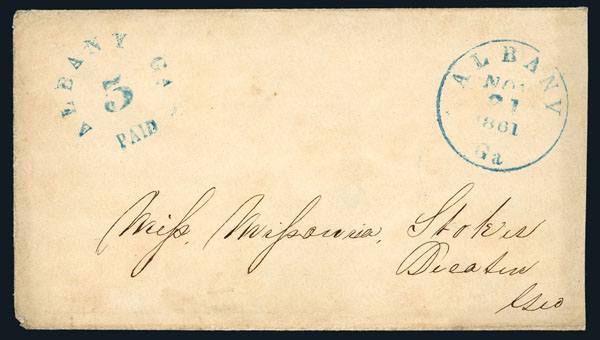 ALBANY GA.
5
PAID
ALBANY
NOV
21
1861
Ga
Miss. Missouria. Stokes
Decatur
Geo